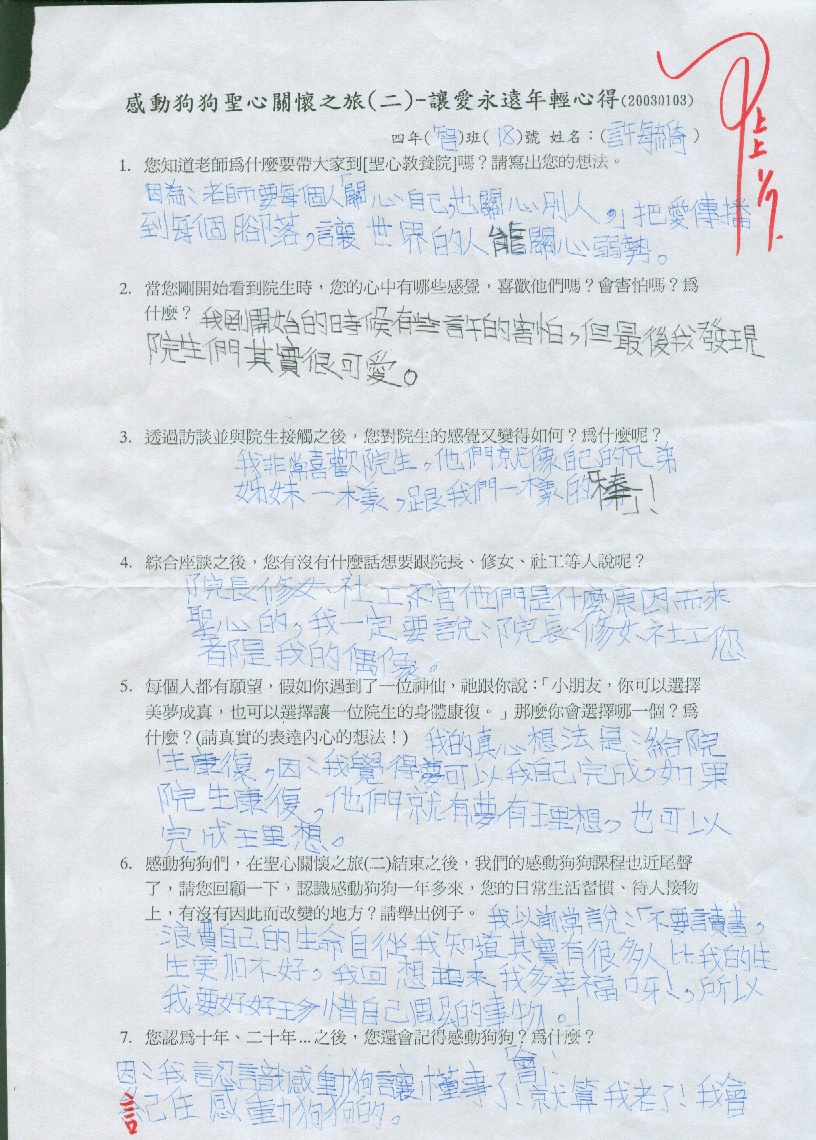 感動狗狗聖心關懷之旅(二)-讓愛永遠年輕心得(20030103)
甲上上
1/7.
四年(智)班(18)號 姓名：(許毓綺)
1. 您知道老師為什麼要帶大家到[聖心教養院]嗎？請寫出您的想法。
因為：老師要每個人「關心自己，也關心別人。」把愛傳播
到每個腳落，讓世界的人能關心弱勢。
2. 當您剛開始看到院生時，您的心中有哪些感覺，喜歡他們嗎？會害怕嗎？為
什麼？ 我剛開始的時候有些許的害怕，但最後我發現
院生們其實很可愛。
3. 透過訪談並與院生接觸之後，您對院生的感覺又變得如何？為什麼呢？
我非常喜歡院生，他們就像自己的兄弟
姊妹一樣，跟我們一樣的「棒」！
4. 綜合座談之後，您有沒有什麼話想要跟院長、修女、社工等人說呢？
院長、修女、社工不管他們是什麼原因而來
聖心的，我一定要說：院長、修女、社工您
都是我的偶像。
5. 每個人都有願望，假如你遇到了一位神仙，祂跟你說：「小朋友，你可以選擇
美夢成真，也可以選擇讓一位院生的身體康復。」那麼你會選擇哪一個？為
什麼？(請真實的表達內心的想法！) 我的真心想法是：給院
生康復，因：我覺得夢可以我自己完成，如果
院生康復，他們就有夢有理想，也可以
完成理想。
6. 感動狗狗們，在聖心關懷之旅(二)結束之後，我們的感動狗狗課程也近尾聲
了，請您回顧一下，認識感動狗狗一年多來，您的日常生活習慣、待人接物
上，有沒有因此而改變的地方？請舉出例子。 我以前常說：「不要讀書，
浪費自己的生命自從我知道其實有很多人比我的生
生更加不好，我回想起來我多幸福呀！，所以
我要好好珍惜自己周圍的事物。！
7. 您認為十年、二十年...之後，您還會記得感動狗狗？為什麼？
「會」！
因：我認識感動狗讓懂事了！就算我老了！我會
記住感動狗狗的。